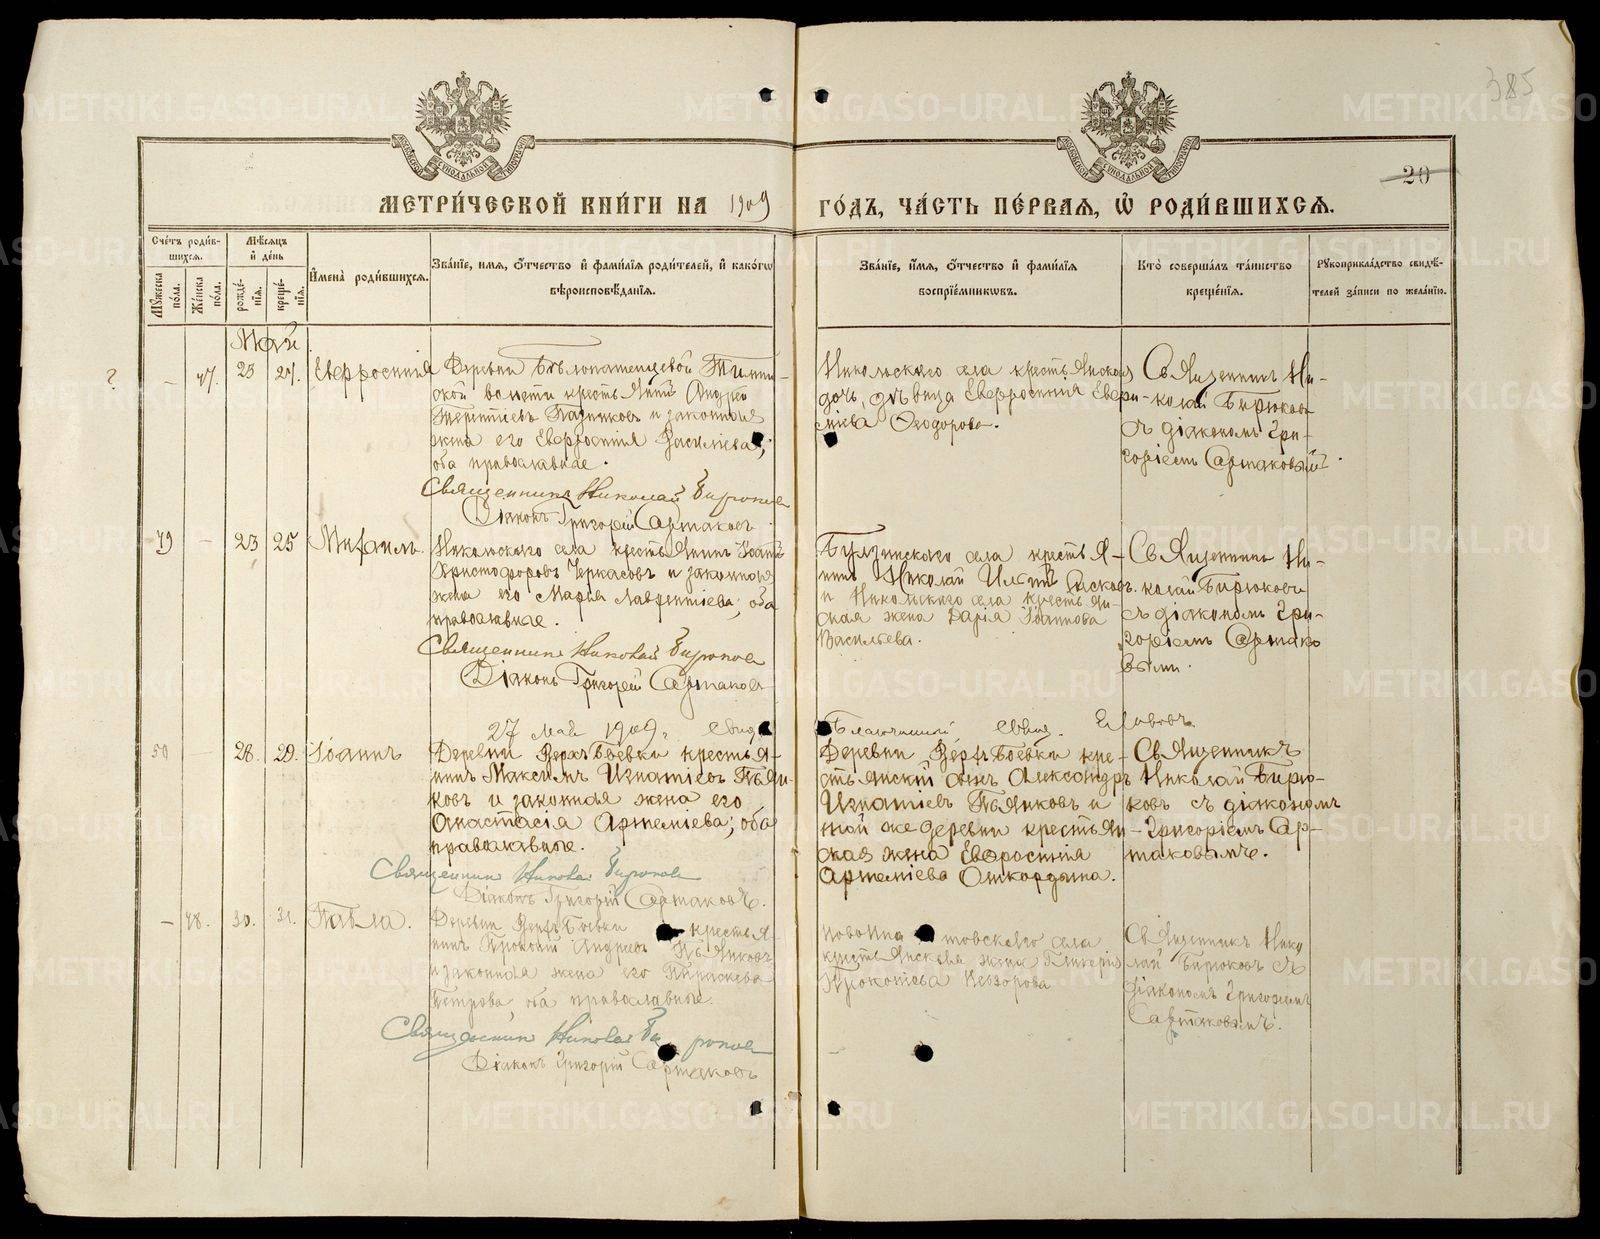 385
20
МЕТРИ́ЧЕСКОЙ КНИ́ГИ НА 1909
ГО́ДЪ, ЧА́СТЬ ПЕ́РВАЯ, Ѡ҆ РОДИ́ВШИХСЯ.
Сче́тъ роди́в-
шихся.
Мꙋ́жеска по́ла.
Же́нска по́ла.
Мѣ́сяцъ
и҆ де́нь
рожде́-
нїя.
креще́-
нїя.
И҆мена̀ роди́вшихся.
Зва́нїе, и҆мя, ѻ҆́тчество и҆ фами́лїя роди́телей, и҆ како́гѡ
вѣроисповѣ́данїя.
Зва́нїе, и҆́мя, ѻ҆́тчество и҆ фами́лїя
воспрїе́мникѡвъ.
Кто̀ соверша́лъ та́инство
креще́нїя.
Рꙋкоприкла́дство свидѣ́-
телей за́писи по жела́нїю.
Май
?
–
47.
23
27.
Евфросинія
Деревни
волости крестьянинъ Андрей
и законная
жена его Евфросинія Васильева;
оба православные.
Священникъ Николай Бирюковъ
Діаконъ Григорій Сартаковъ
Никольскаго села крестьянская
дочь, дѣвица Евфросинія
Ѳеодорова.
Священникъ Ни-
колай Бирюковъ
съ діакономъ Гри-
горіемъ Сартаковымъ.
49
–
23
25
Михаилъ.
Никольскаго села крестьянинъ Іоаннъ
Христофоровъ Черкасовъ и законная
жена его Марія Лаврентіева; оба
православные.
Священникъ Николай Бирюковъ
Діаконъ Григорій Сартаковъ
села крестья-
нинъ Николай
и Никольскаго села крестьян-
ская жена Дарія Іоаннова
Васильева.
Священникъ Ни-
колай Бирюковъ
съ діакономъ Гри-
горіемъ Сартако-
вымъ.
27 мая 1909 г.
Благочинный, свящ.
50
–
28.
29.
Іоаннъ
Деревни Верхъ Боевки крестья-
нинъ Максимъ Игнатіевъ Пьян-
ковъ и законная жена его
Анастасія Артеміева; оба
православные.
Священникъ Николай Бирюковъ
Діаконъ Григорій Сартаковъ.
Деревни Верхъ Боевки кре-
стьянскій сынъ Александръ
Игнатіевъ Пьянковъ и
той же деревни крестьян-
ская жена Евфросинія
Артеміева
Священникъ
Николай Бирю-
ковъ съ діакономъ
Григоріемъ Сар-
таковымъ.
–
48.
30.
31.
Павла.
Деревни Верхъ Боевки крестья-
нинъ Прокопій Андреевъ Пьянковъ
и законная жена его Параскева
Петрова оба православные.
Священникъ Николай Бирюковъ
Діаконъ Григорій Сартаковъ
села
крестьянская жена Гликерія
Прокопіева Невзорова
Священникъ Нико-
лай Бирюковъ съ
діакономъ Григоріемъ
Сартаковымъ.
METRIKI.GASO-URAL.RU